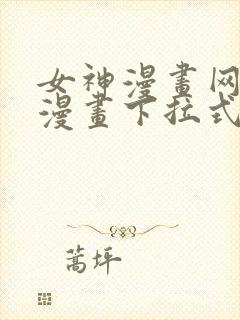 女神漫畫网
漫畫下拉式
蒿坪